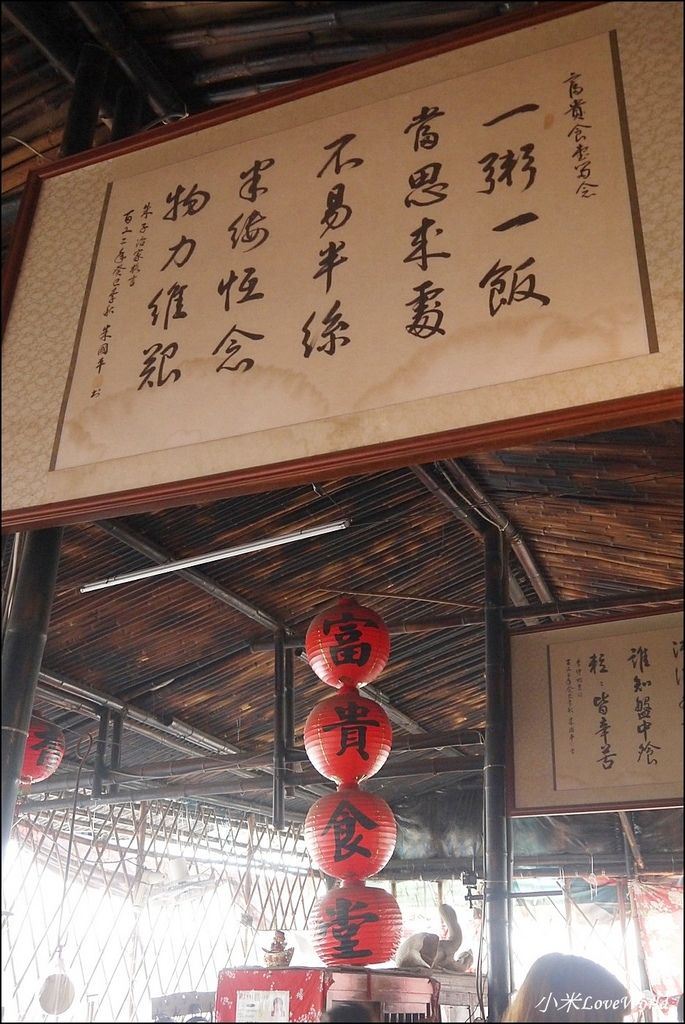 富貴食堂写念
一粥一飯
當思來處
不易半絲
半縷恆念
物力維艱
朱子治家格言
百二年癸巳季秋 朱國平 书
富
貴
食
堂
誰知盤中飧
粒:皆辛苦
小米LoveWorld